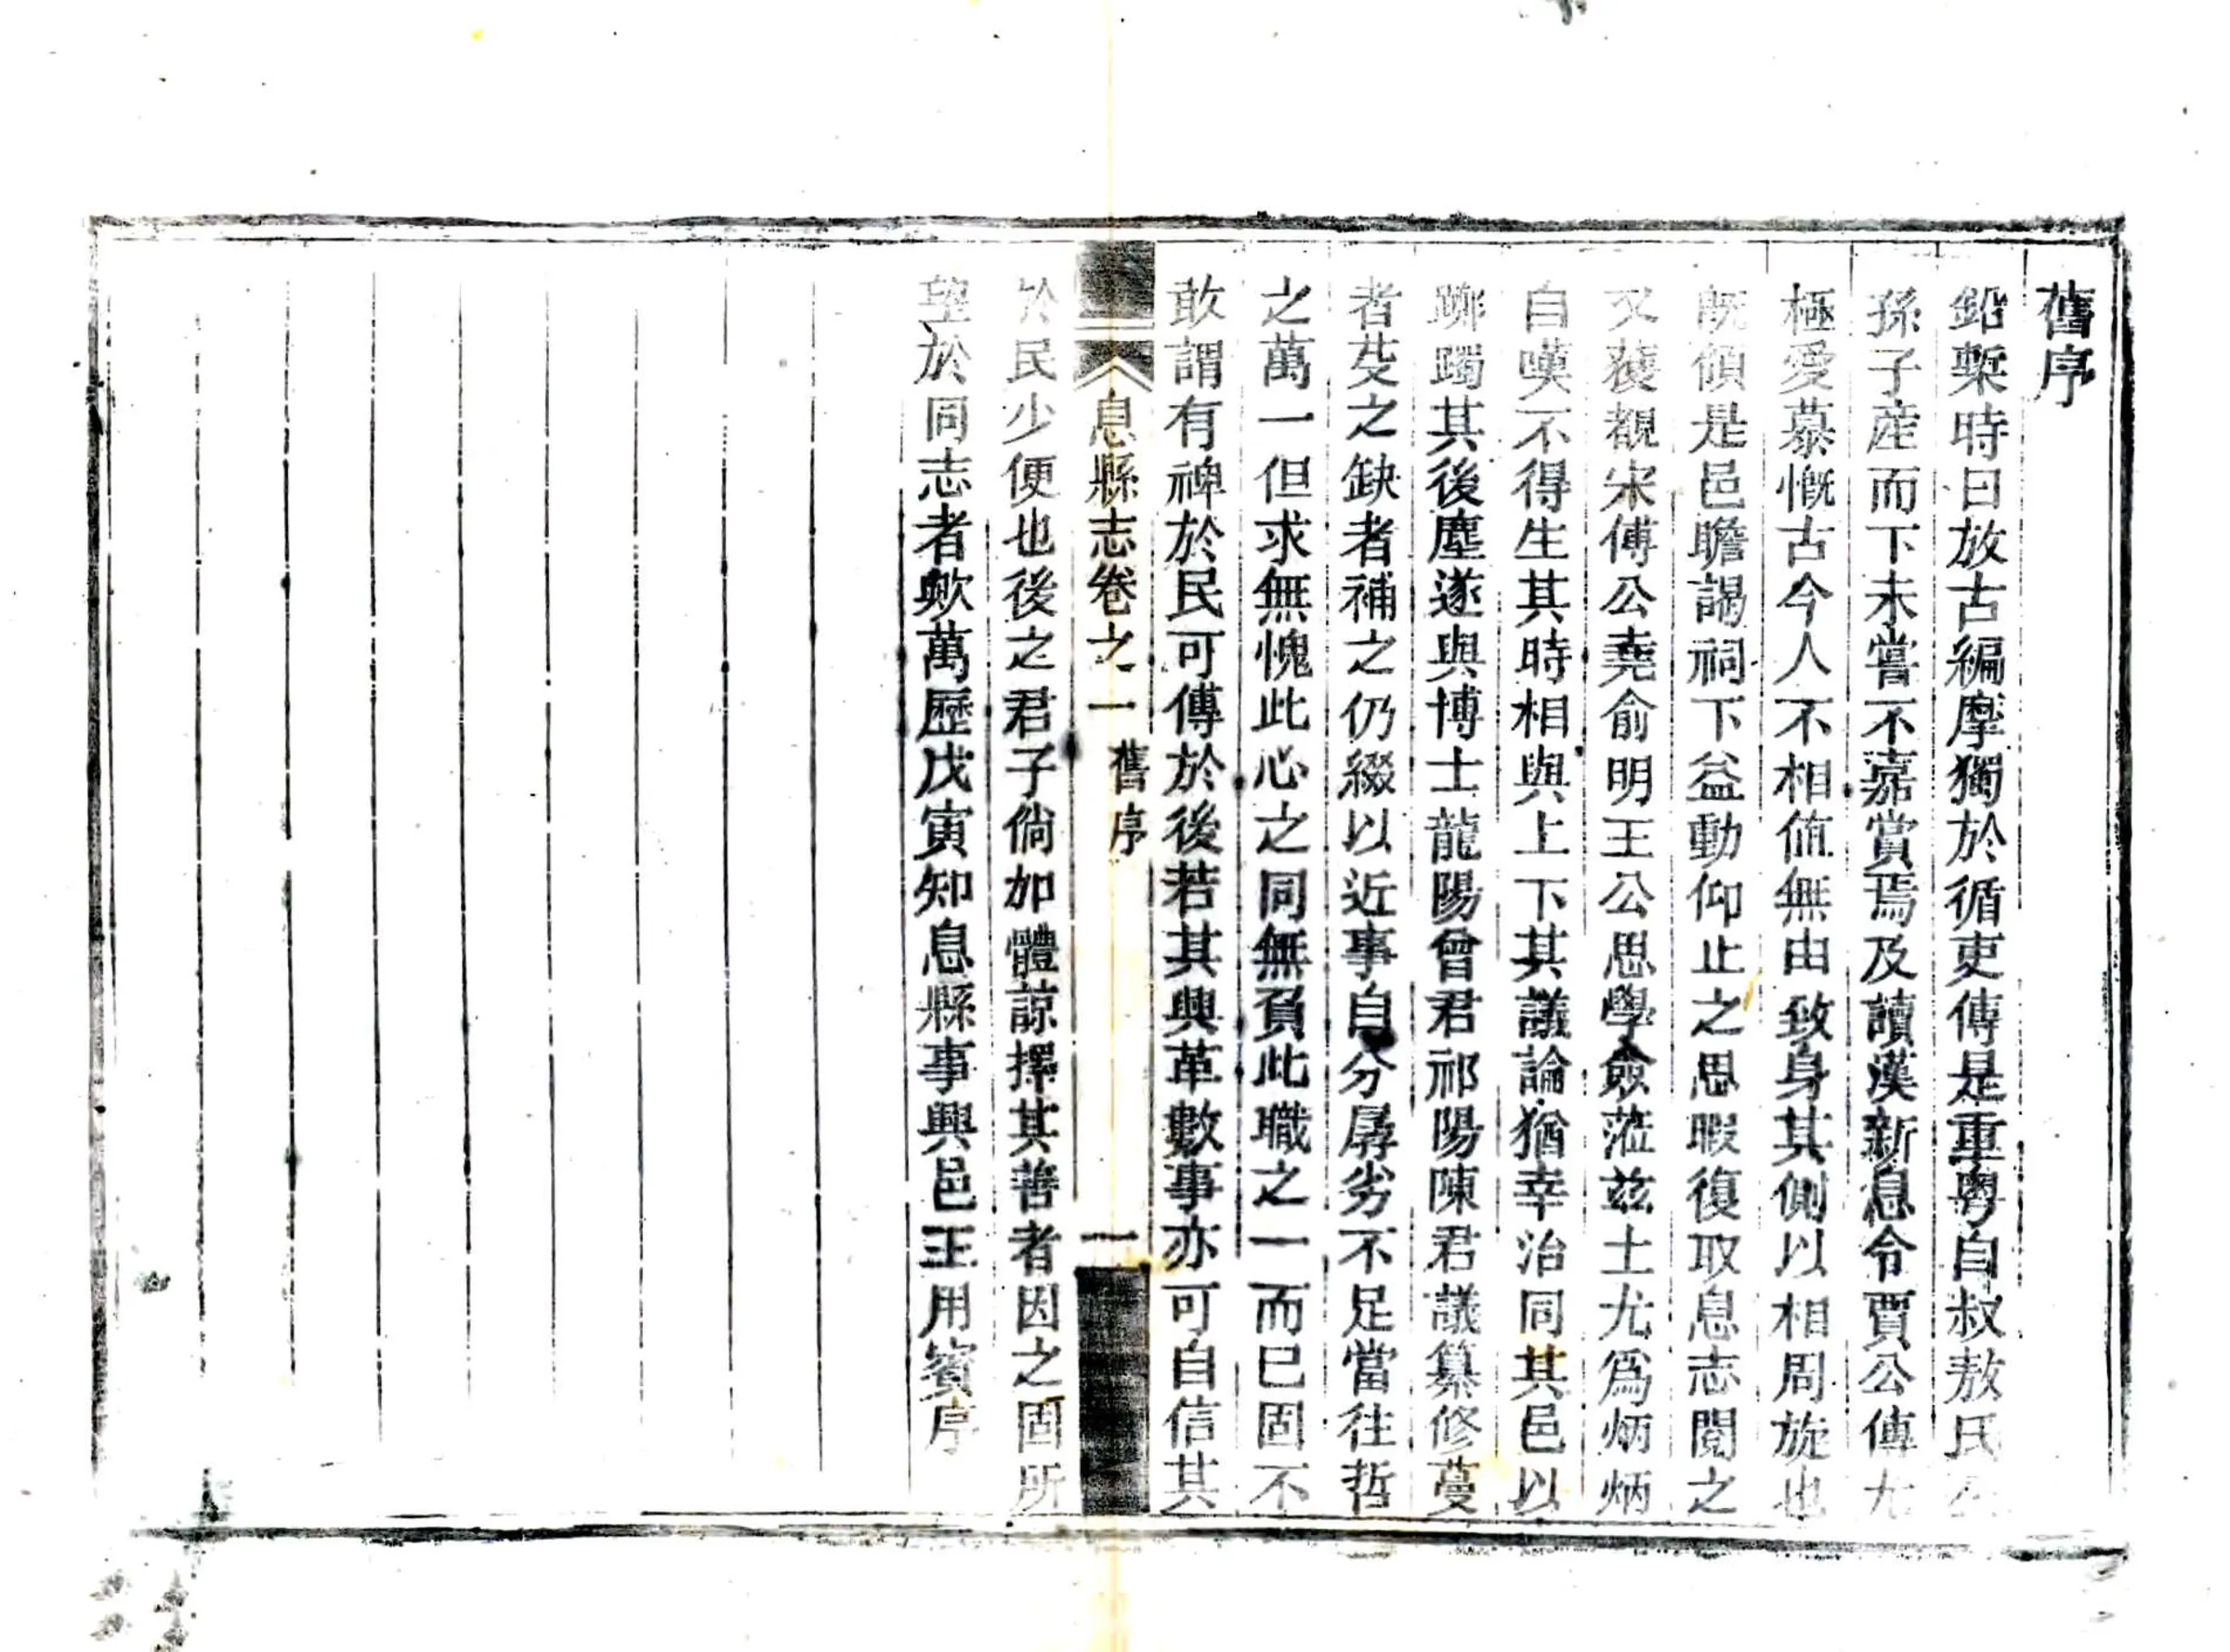 舊序
鉛槧時日放古編摩獨於循吏傳是重粤自叔敖氏公
孫子產而下未嘗不嘉賞焉及讀漢新息令賈公傳尤
極愛慕慨古今人不相值無由致身其側以相周旋也
既傾是邑瞻謁祠下益動仰止之思暇復取息志閱之
又獲覩宋傅公堯俞明王公思學僉蒞茲土尤爲炳炳
自嘆不得生其時相與上下其議論猶幸治同其邑以
躑躅其後塵遂與博士龍陽曾君祁陽陳君議纂修蔓
者芟之缺者補之仍綴以近事自分孱劣不足當往哲
之萬一但求無愧此心之同無負此職之一而已固不
敢謂有裨於民可傳於後若其興革數事亦可自信其
息縣志卷之一 舊序 一
於民少便也後之君子倘加體諒擇其善者因之固所
望於同志者歟萬歷戊寅知息縣事興邑王用賓序